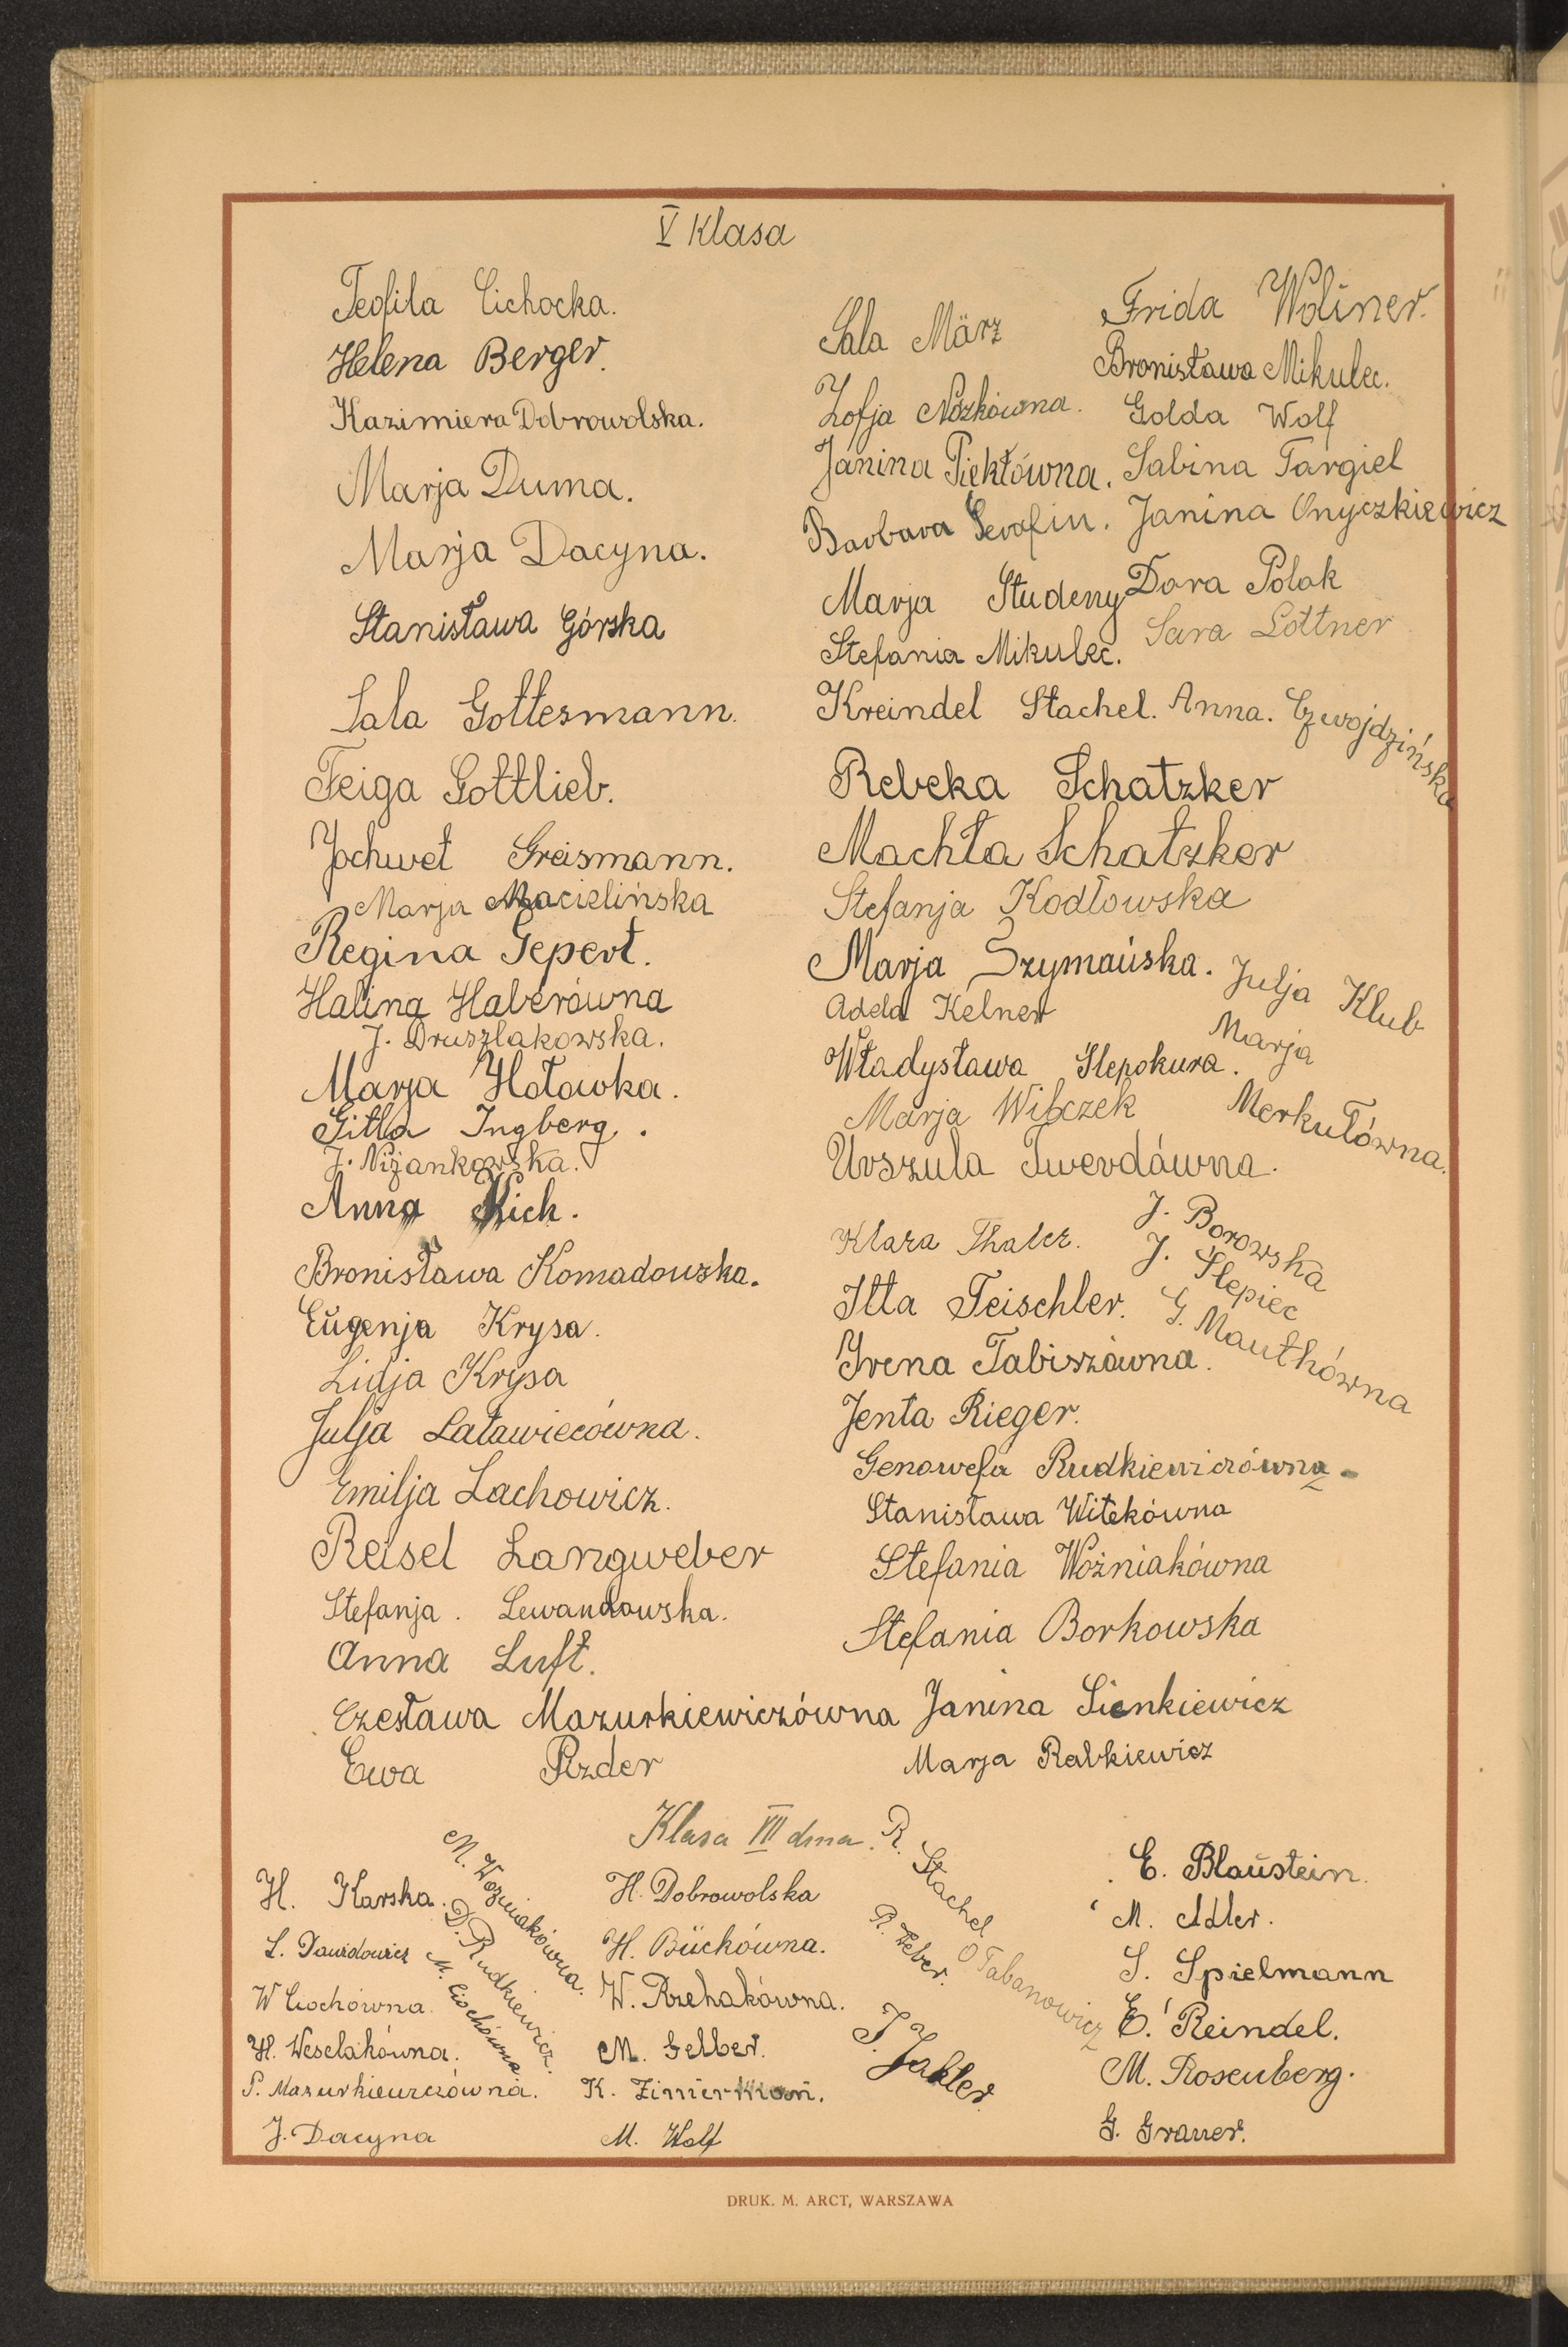 V Klasa
Teofila Cichocka.
Helena Berger.
Kazimiera Dobrowolska.
Marja Duma.
Marja Dacyna.
Stanisława Górska
Sala Gottesmann.
Feiga Gottlieb.
Jochwet Greismann.
Marja Macielińska
Regina Gepert.
Halina Haberówna
J. Druszlakowska.
Marja Hołowka.
Gitla Ingberg.
J. Niżankowska.
Anna Kich.
Bronisława Komadowska.
Eugenja Krysa.
Lidja Krysa
Julja Latawiecówna.
Emilja Lachowicz.
Reisel Langweber
Stefanja. Lewandowska.
Anna Luft.
Czesława Mazurkiewiczówna
Ewa Rzder
Sala März
Zofja Nózkówna.
Janina Piekłówna.
Barbara Serafin.
Marja Studeny
Stefania Mikulec.
Kreindel Stachel.
Rebeka Schatzker
Machła Schatzker
Stefanja Kodłowska
Marja Szymańska.
Adela Kelner
Władysława Ślepokura.
Marja Wilczek
Urszula Twerdówna.
Klara Thaler.
Itta Teischler.
Irena Tabiszówna.
Jenta Rieger.
Genowefa Rudkiewiczówna
Stanisława Witekówna
Stefania Woźniakówna
Stefania Borkowska
Janina Sienkiewicz
Marja Rabkiewicz
Frida Woliner.
Bronisława Mikulec.
Golda Wolf
Sabina Targiel
Janina Onyczkiewicz
Dora Polak
Sara Lottner
Anna. Czwojdzińska
Julja Klub
Marja
Merkułówna.
J. Borowska
J. Ślepiec
G. Mauthówna
Klasa VII dma.
H. Karska.
L. Dawidowicz
W Ciochówna.
H. Weselakówna.
S. Mazurkiewiczówna.
J. Dacyna
M. Woźniakówna.
D. Rudkiewicz.
M. Ciochówna
H. Dobrowolska
H. Bückówna.
W. Rzehakówna.
M. Gelber.
K. Zimerman.
M. Wolf
R. Stachel
R. Zeber.
O Tabanowicz
J. Jakler
E. Blaustein.
M. Adler.
S. Spielmann
E. Reindel.
M. Rosenberg.
G. Grauer.
DRUK. M. ARCT, WARSZAWA